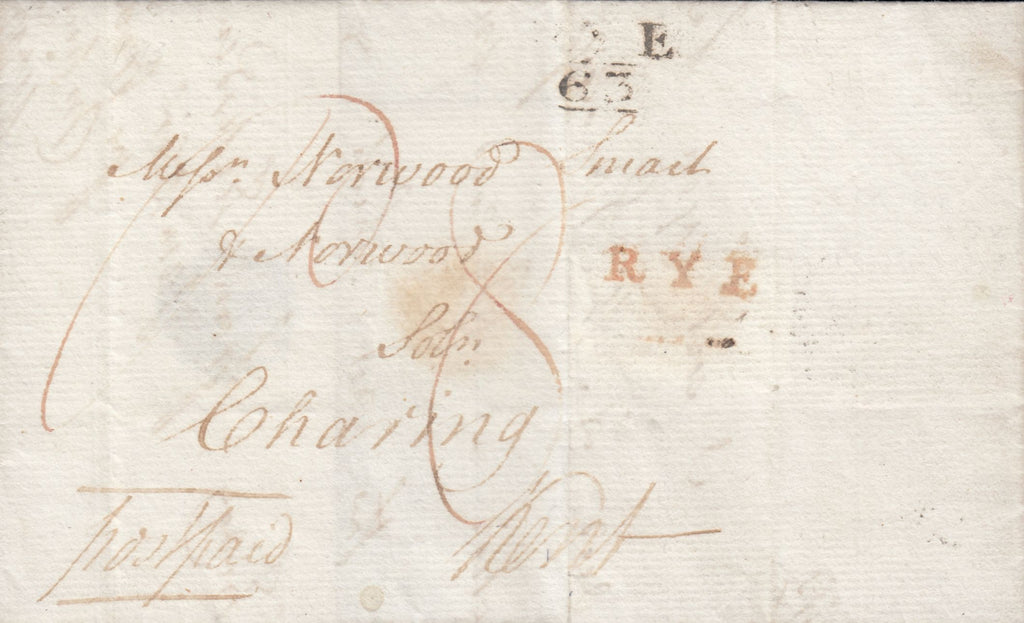 E
63
Messrs. Norwood
& Norwood
RYE
Solrs.
Charing
Kent
postpaid